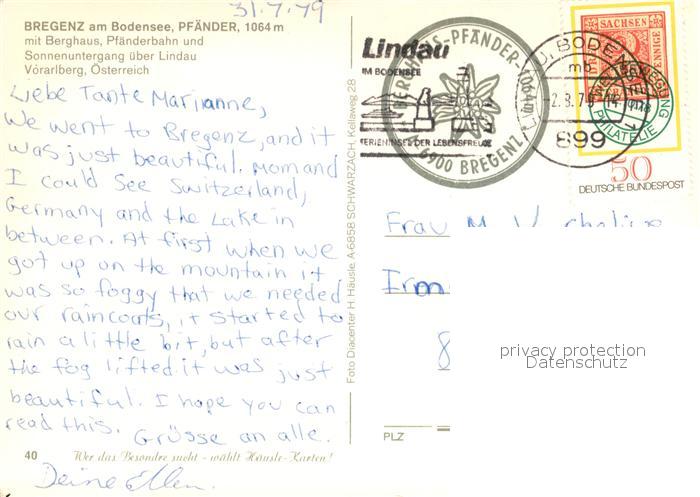 31.7.79
BREGENZ am Bodensee, PFÄNDER, 1064 m
mit Berghaus, Pfänderbahn und
Sonnenuntergang über Lindau
Vorarlberg, Österreich
Liebe Tante Marianne,
We went to Bregenz, and it
was just beautiful. Mom and
I could see Switzerland,
Germany and the Lake in
between. At first when we
got up on the mountain it
was so foggy that we needed
our raincoats, it started to
rain a little bit, but after
the fog lifted it was just
beautiful. I hope you can
read this. Grüsse an alle.
40 Wer das Besondre sucht - wählt Häusle-Karten!
Deine Ellen.
Foto Diacenter H. Häusle A-6858 SCHWARZACH, Kellaweg 28
Lindau
IM BODENSEE
FERIENINSEL DER LEBENSFREUDE
BERGHAUS-PFÄNDER-1064m
A-6900 BREGENZ
BODEN
mb
-2.8.79-14
899
SACHSEN
PFENNIGE
PHILATELIE
50
DEUTSCHE BUNDESPOST
Frau M.
Irm
8
privacy protection
Datenschutz
PLZ